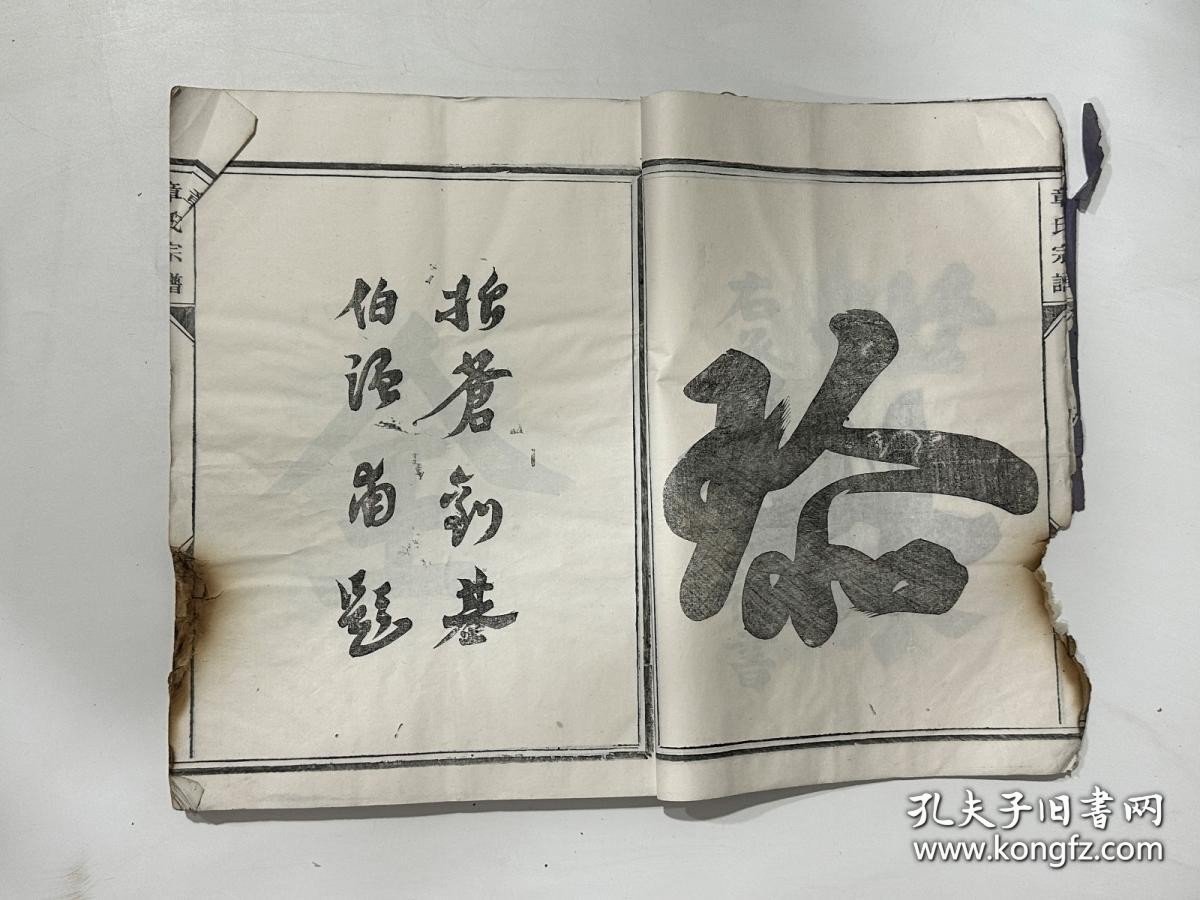 章氏宗譜
括蒼劉基
伯溫甫題
章氏宗譜
孔夫子旧书网
www.kongfz.com